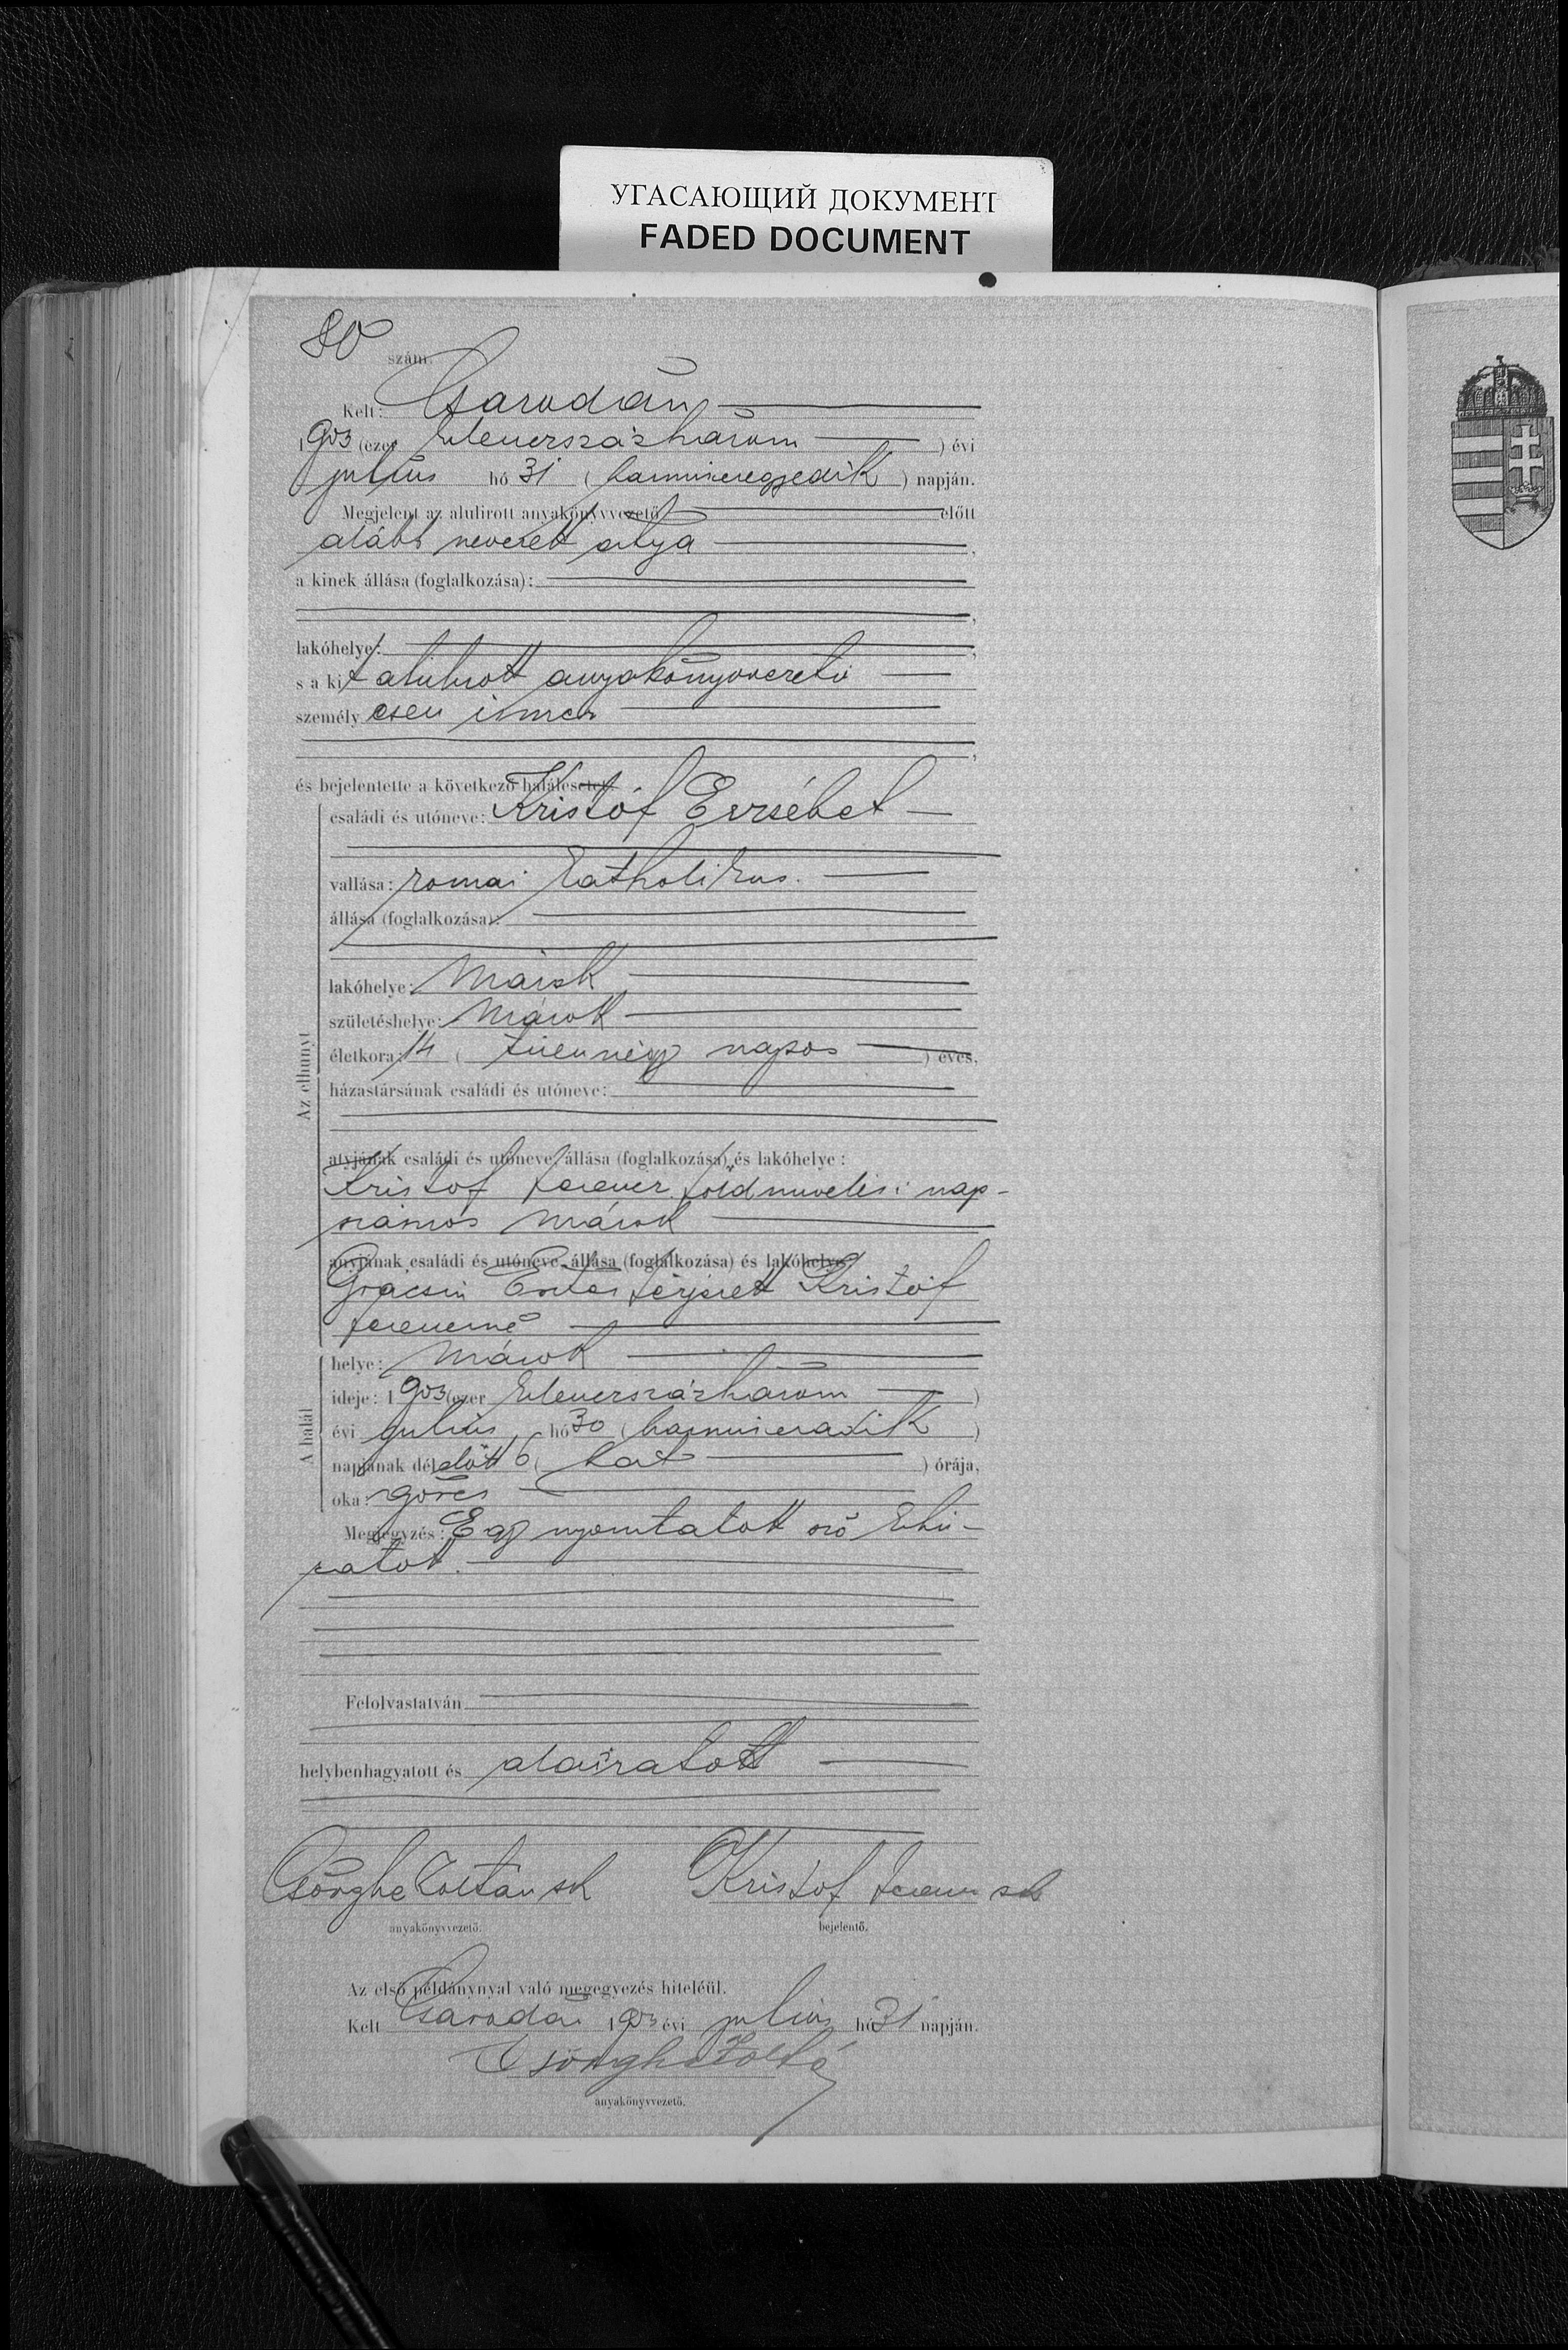 УГАСАЮЩИЙ ДОКУМЕНТ
FADED DOCUMENT
80 szám.
Kelt: Csarodán
1903 (ezer kilenczszázhárom) évi
julius hó 31 (harminczegyedik) napján.
Megjelent az alulirott anyakönyvvezető előtt
alább nevezett atya,
a kinek állása (foglalkozása):
lakóhelye:
s a kit alulirott anyakönyvvezető
személyesen ismer
és bejelentette a következő halálesetet:
családi és utóneve: Kristóf Erzsébet
vallása: romai katholikus.
állása (foglalkozása):
lakóhelye: Márok
születéshelye: Márok
Az elhunyt
életkora: 14 (tizennégy napos) éves,
házastársának családi és utóneve:
atyjának családi és utóneve, állása (foglalkozása) és lakóhelye:
Kristóf Ferencz földmivelési nap-
számos Márok
anyjának családi és utóneve, állása (foglalkozása) és lakóhelye:
Eszter férjezett Kristóf
Ferenczné
A halál
helye: Márok
ideje: 1903 (ezer kilenczszázhárom)
évi julius hó 30 (harminczadik)
napjának délelőtt 6 (hat) órája,
oka: görcs
Megjegyzés: Egy nyomtatott szó kihú-
zatott.
Felolvastatván
helybenhagyatott és aláiratott
Csönghe Zoltán sk
anyakönyvvezető.
Kristóf Ferencz sk
bejelentő.
Az első példánynyal való megegyezés hiteléül.
Kelt Csarodán 1903 évi julius hó 31 napján.
Csönghe Zoltán
anyakönyvvezető.